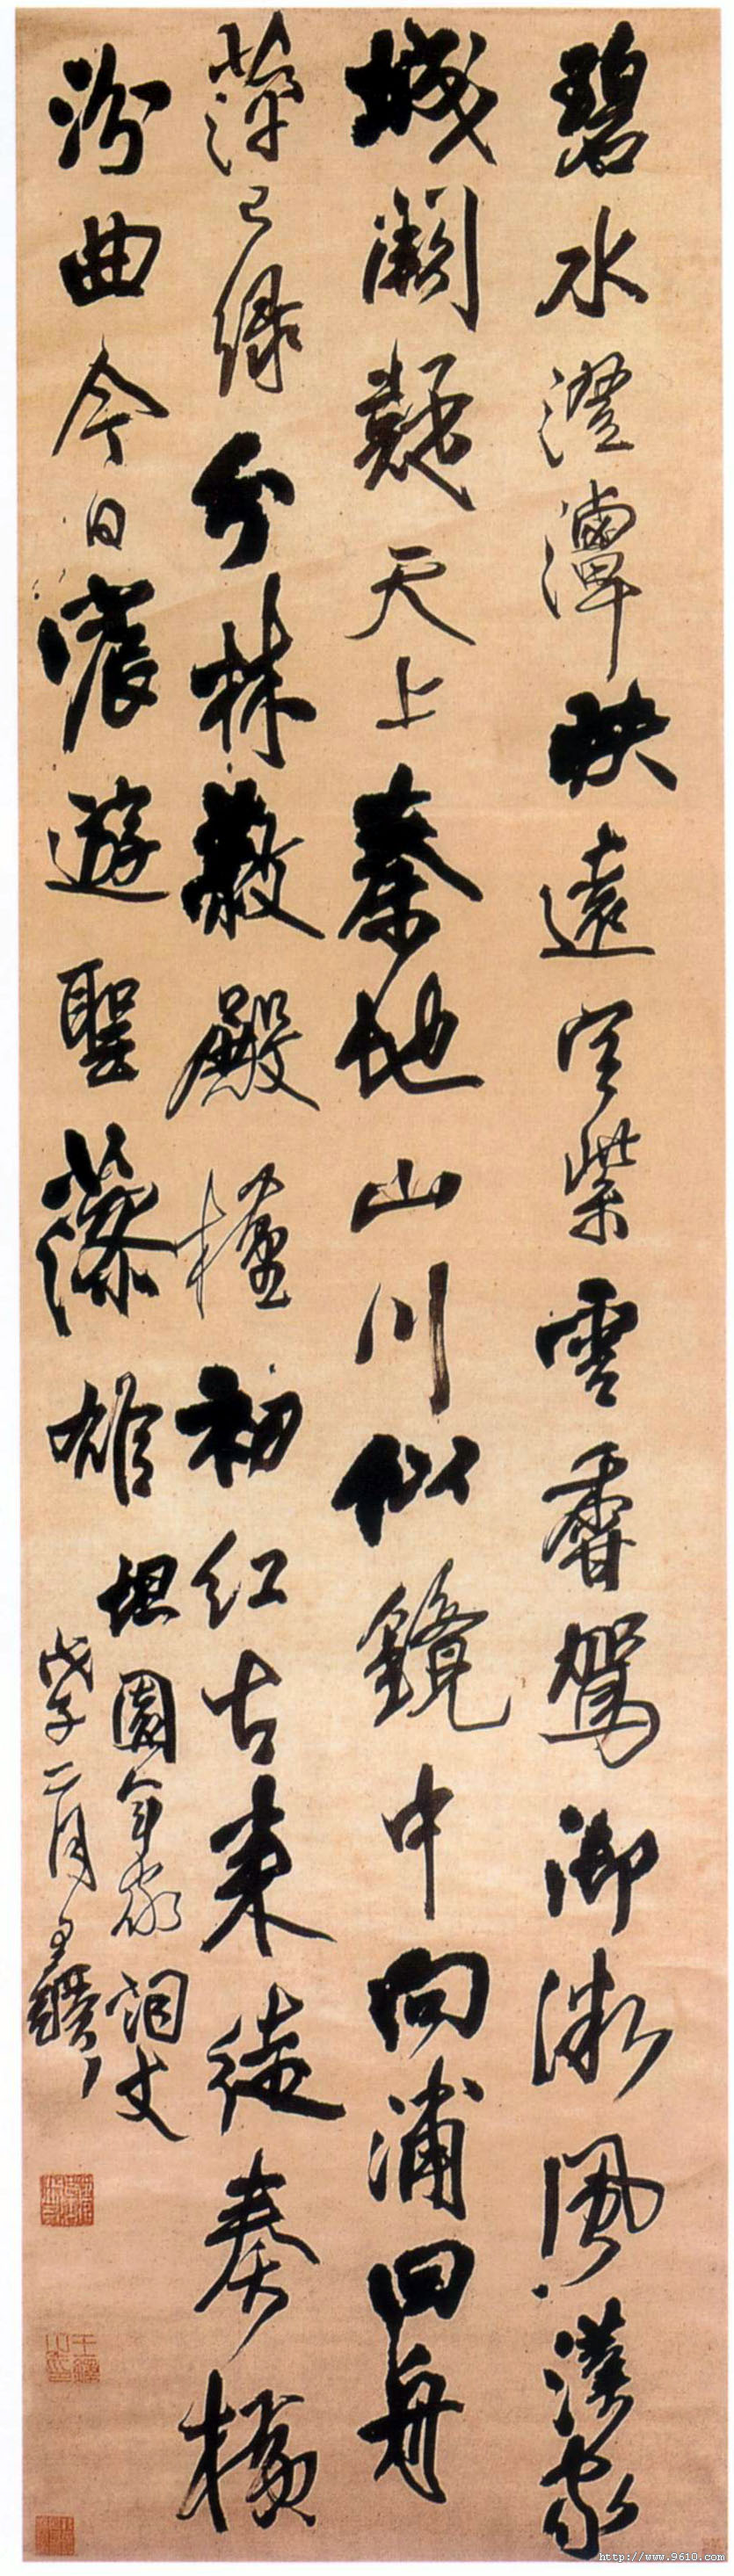 碧水澄潭映遠空紫雲香駕御微風漢家
城闕疑天上秦地山川似鏡中向浦回舟
萍已綠分林蔽殿槿初紅古來徒奏橫
汾曲今日宸遊聖藻雄
坦園年家詞丈
戊子二月王鐸
http://www.9610.com